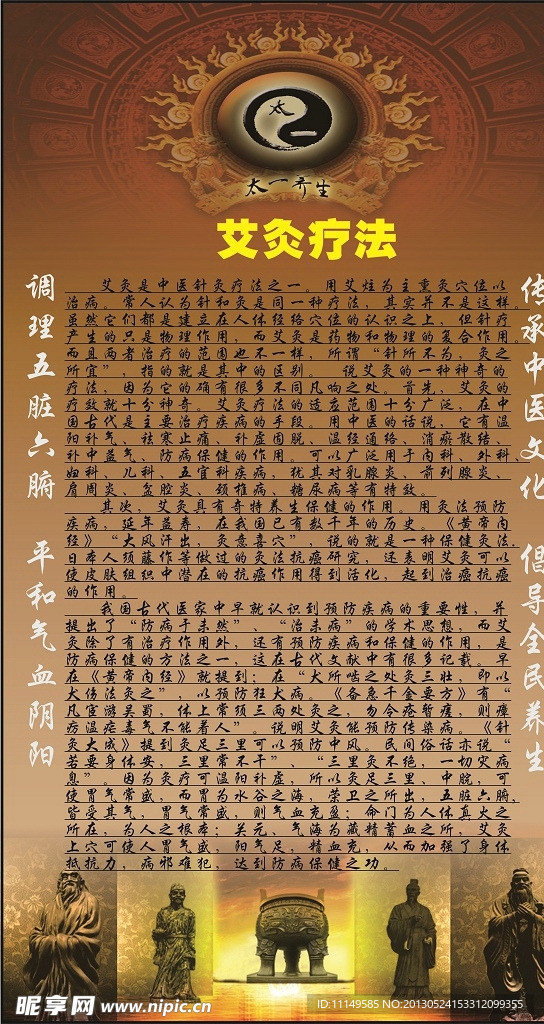 太
一
太一养生
艾灸疗法
调理五脏六腑 平和气血阴阳
传承中医文化 倡导全民养生
艾灸是中医针灸疗法之一。用艾炷为主熏灸穴位以
治病。常人认为针和灸是同一种疗法，其实并不是这样。
虽然它们都是建立在人体经络穴位的认识之上，但针疗
产生的只是物理作用，而艾灸是药物和物理的复合作用。
而且两者治疗的范围也不一样，所谓“针所不为，灸之
所宜”，指的就是其中的区别。 说艾灸的一种神奇的
疗法，因为它的确有很多不同凡响之处。首先，艾灸的
疗效就十分神奇。艾灸疗法的适应范围十分广泛，在中
国古代是主要治疗疾病的手段。用中医的话说，它有温
阳补气、祛寒止痛、补虚固脱、温经通络、消瘀散结、
补中益气、防病保健的作用。可以广泛用于内科、外科、
妇科、儿科、五官科疾病，犹其对乳腺炎、前列腺炎、
肩周炎、盆腔炎、颈椎病、糖尿病等有特效。
其次，艾灸具有奇特养生保健的作用。用灸法预防
疾病，延年益寿，在我国已有数千年的历史。《黄帝内
经》“大风汗出，灸意喜穴”，说的就是一种保健灸法.
日本人须藤作等做过的灸法抗癌研究，还表明艾灸可以
使皮肤组织中潜在的抗癌作用得到活化，起到治癌抗癌
的作用。
我国古代医家中早就认识到预防疾病的重要性，并
提出了“防病于未然”、“治未病”的学术思想，而艾
灸除了有治疗作用外，还有预防疾病和保健的作用，是
防病保健的方法之一，这在古代文献中有很多记载。早
在《黄帝内经》就提到：在“犬所啮之处灸三壮，即以
犬伤法灸之”，以预防狂犬病。《备急千金要方》有“
凡宦游吴蜀，体上常须三两处灸之，勿令疮暂瘥，则瘴
疠温疟毒气不能着人”。说明艾灸能预防传染病。《针
灸大成》提到灸足三里可以预防中风。民间俗话亦说“
若要身体安，三里常不干”、“三里灸不绝，一切灾病
息”。因为灸疗可温阳补虚，所以灸足三里、中脘，可
使胃气常盛，而胃为水谷之海，荣卫之所出，五脏六腑，
皆受其气，胃气常盛，则气血充盈；命门为人体真火之
所在，为人之根本；关元、气海为藏精蓄血之所，艾灸
上穴可使人胃气盛，阳气足，精血充，从而加强了身体
抵抗力，病邪难犯，达到防病保健之功。
昵享网 www.nipic.cn
ID:11149585 NO:20130524153312099355